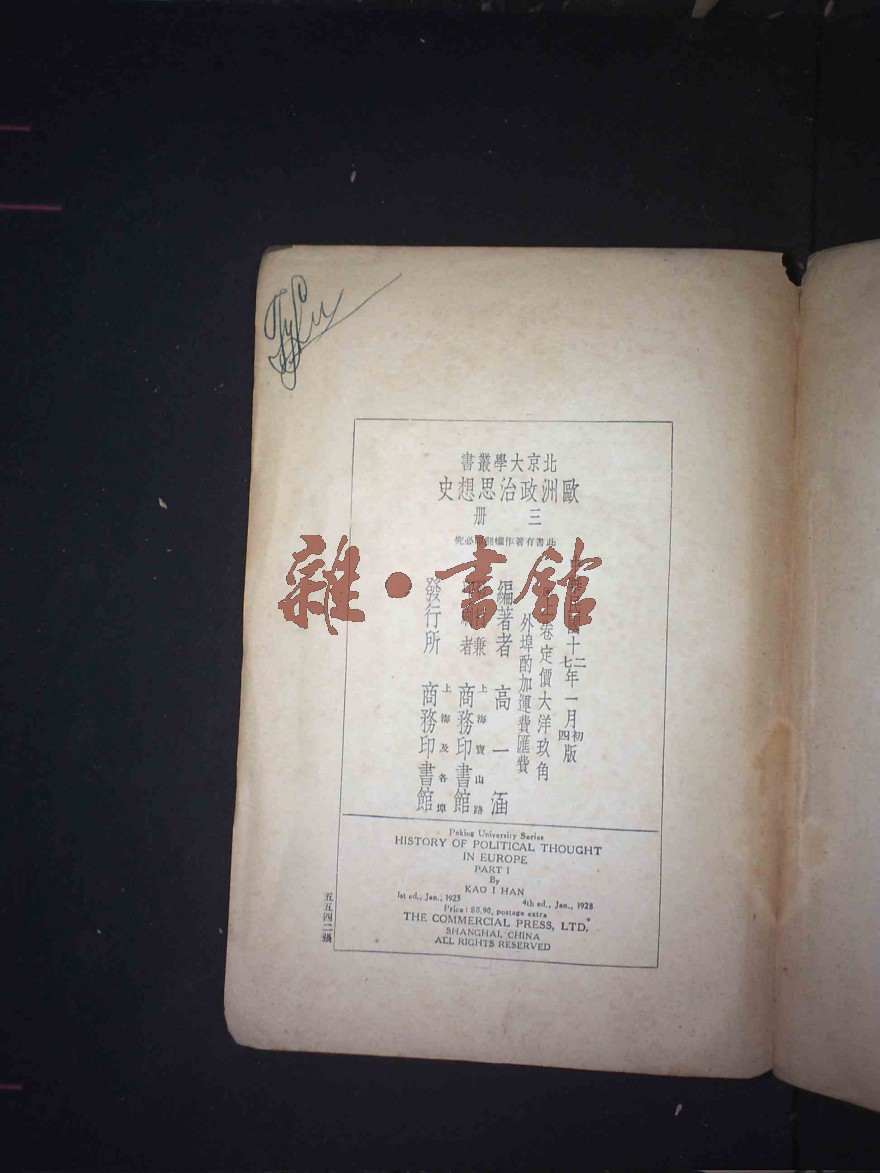 北京大學叢書
歐洲政治思想史
三冊
此書有著作權翻印必究
十二年一月初版
七年一月四版
卷定價大洋玖角
外埠酌加運費匯費
編著者 高一涵
上海寶山路
商務印書館
發行所
上海及各埠
商務印書館
Peking University Series
HISTORY OF POLITICAL THOUGHT
IN EUROPE
PART I
By
KAO I HAN
1st ed., Jan., 1923 4th ed., Jan., 1928
Price: $0.90, postage extra
THE COMMERCIAL PRESS, LTD.
SHANGHAI, CHINA
ALL RIGHTS RESERVED
五五四二張
雜·書館